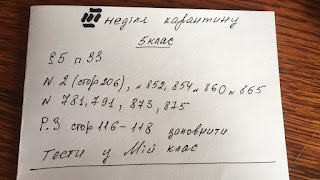 III неділя карантину
5 клас
§5 п 33
N 2 (стор 206), N 852, 854, N 860 N 865
N 781, 791, 873, 875
Р.З стор 116-118 заповнити
Тести у Мій клас